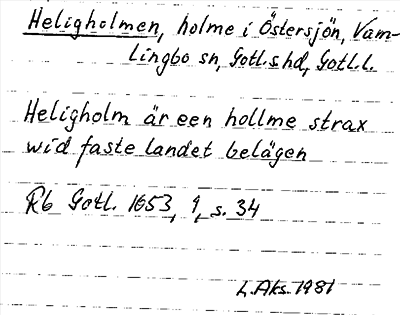 Heligholmen, holme i Östersjön, Vam-
lingbo sn, Gotl.s.hd, Gotl.l.
Heligholm är een hollme strax
wid faste landet belägen
Rb Gotl. 1653, 1, s. 34
L. Aks. 1981